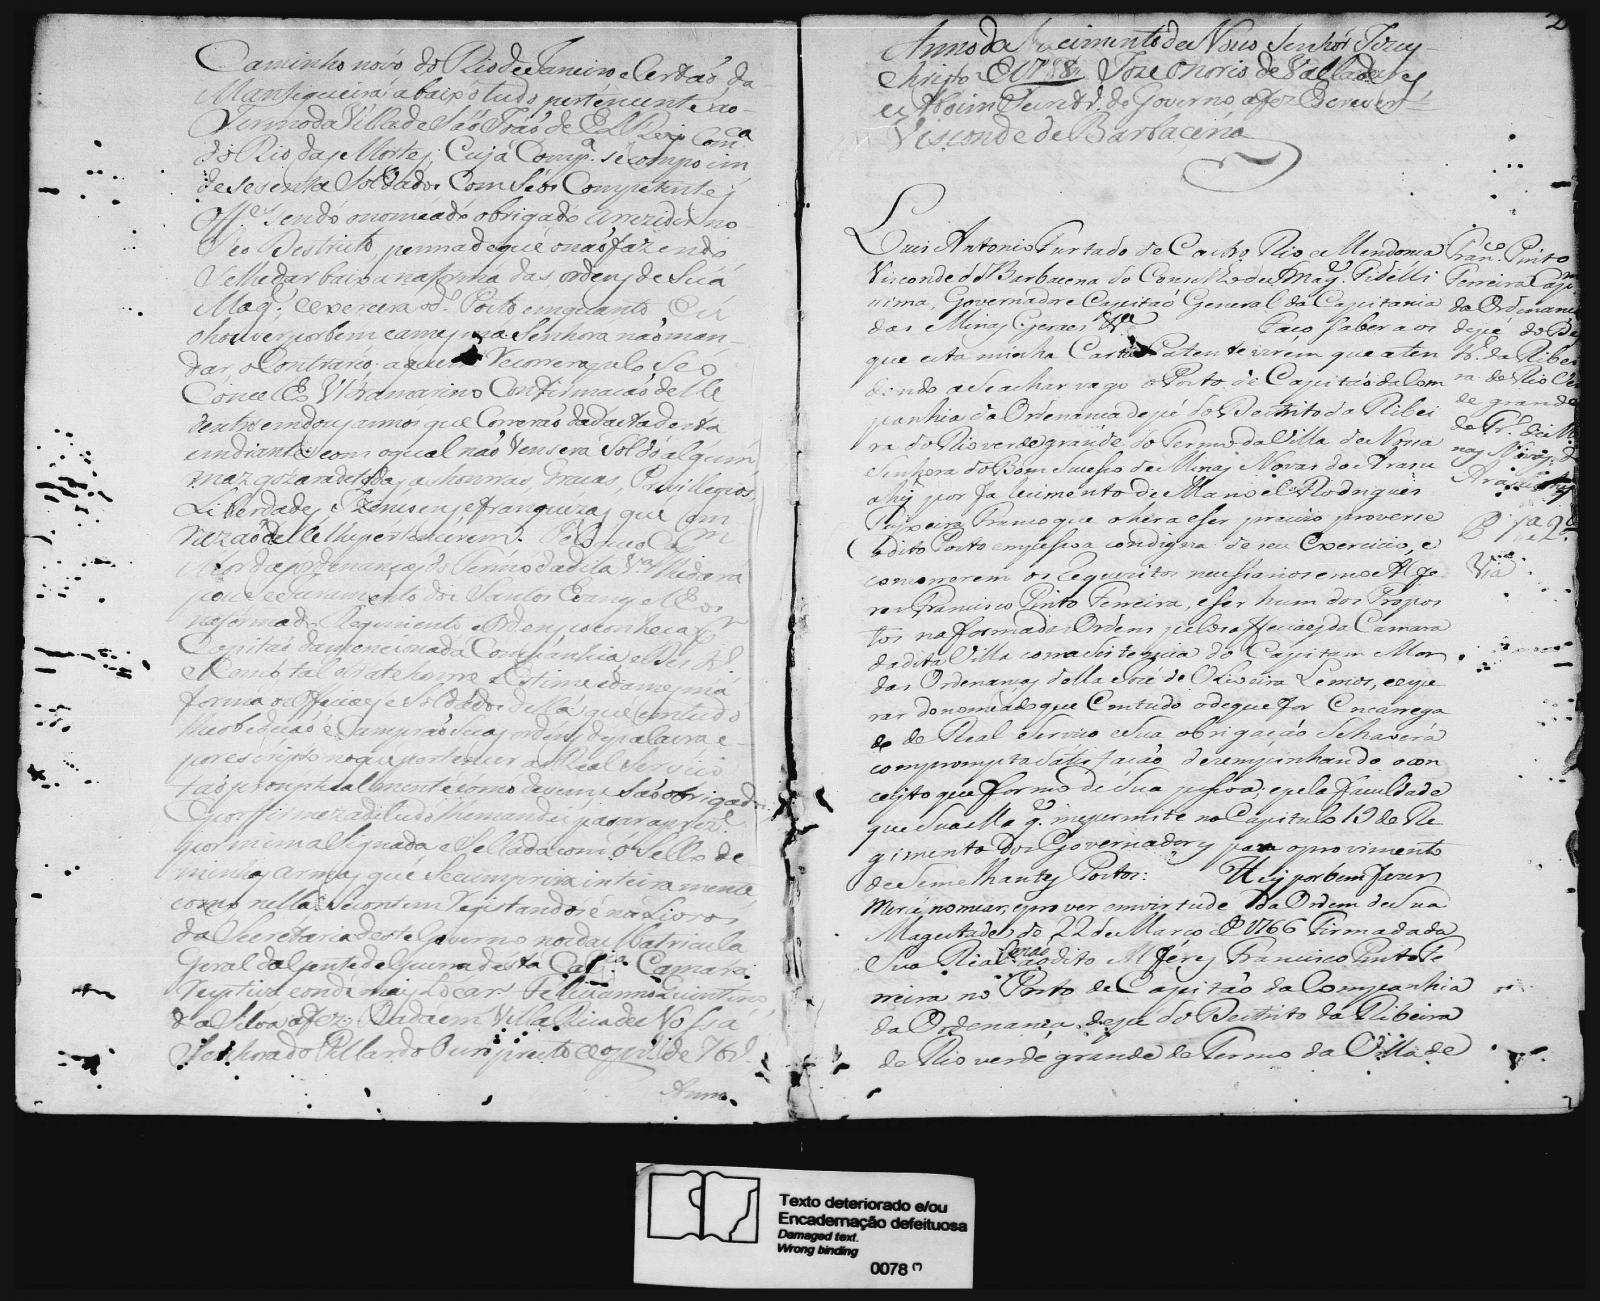 Caminho novo do Rio de Janeiro e Certaõ da
Mantiqueira abaixo tudo pertencente ao
Termo da Villa de Saõ Joaõ de El Rey Comca
do Rio das Mortes, Cuja Compa. se compoim
de sesenta Soldados Com seos Competentes
Offes. sendo o nomeado obrigado a rezidir no
Seo Destricto, penna de que o naõ fazendo
se lhe dar baixa na forma das ordens de Sua
Mage. e exercera o do. Posto emquanto Eu
o houver por bem e a mesma Senhora naõ man-
dar o Contrario: a quem Recorrera pelo Seo
Concelho Ultramarino Confirmacaõ delle
dentro em dous annos que Correraõ da data desta
em diante: com o qual naõ Vensera Soldo algum
maz gozara de todas as honras, Gracas, Previllegios,
Liberdades, Izencoens, e franquezas que em
razaõ delle lhe pertencerem. Pelo que o Cam
Mor das ordenanças do Termo da dita Va. lhe dara
pose e Juramento dos Santos Evangelhos
na forma do Regimento e ordens, e o conheça por
Capitaõ da mencionada Companhia,
e Como tal o trate honre e estime e da mesma
forma os Officiaes e Soldados della que em tudo
lhe obedeçaõ e Cumpraõ Suas ordens de palavra e
por escripto no que pertencer ao Real Servico
taõ promptualmente como devem e saõ obrigados
E por firmeza de tudo lhe mandei pasar a prezte.
por mim asignada e Sellada com o Sello de
minhas armas que Se cumprira inteiramente
como nella Se contem Registandose nos Livros
da Secretaria deste Governo nos da Matricula
Geral da Gente de Guerra desta Capnia. Camara
Respectiva e onde mais tocar. Feliciano Quintino
da Silva a fez. Dada em Villa Rica de Nossa
Senhora do Pillar do Ouro preto
Anno
2
Anno do Nacimento de Nosso Senhor Jezus
Christo de 1788 Joze Onorio de Valladares
e Aboim Secretro. do Governo a fez Escrever
Visconde de Barbacena
Luis Antonio Furtado de Castro Rio e Mendonca
Visconde de Barbacena do Conselho de Mage. Fidelli
ssima, Governador e Capitaõ General da Capitania
das Minas Geraes &a Faço saber aos
que esta minha Carta Patente virem que aten
dendo a Se achar vago o Posto de Capitaõ da Com
panhia da Ordenanca de pé do Destrito da Ribei
ra do Rio verde grande do Termo da Villa de Nossa
Senhora do Bom Sucesso de Minas Novas do Arasu
ahy por falecimento de Manoel Rodrigues
Teixeira Franco que o hera e ser precizo proverse
o dito Posto em pessoa condigna de seu Exercicio, e
concorrerem os Requezitos necessarios em o Alfe
res Francisco Pinto Ferreira, e ser hum dos Propos
tos na forma das Ordens pelos officiaes da Camara
da dita Villa com asistencia do Capitam Mor
das Ordenanças della José de Oliveira Lemos, e espe
rar do nomeado que em tudo o de que for Encarrega
do de Real Serviso e sua obrigaçaõ Se haverá
com prompta Satisfaçaõ dezempinhando o con
ceito que formo de Sua pessoa, e pela faculdade
que Sua Mage. me permite no Capitulo 19 de Re
gimento dos Governadores para o provimento
de Semelhantes Postos: Hey por bem fazer
Mercê nomear, e prover em virtude da Ordem de Sua
Magestade de 22 de Março de 1766 Firmada da
Sua Rial ao dito Alferes Francisco Pinto Fe
rreira no Posto de Capitaõ da Companhia
da Ordenança de pé do Destrito da Ribeira
de Rio verde grande de Termo da Villa de
Franco. Pinto
Ferreira Capm.
da Ordenanca
de pé do De
tr. da Ribei
ra de Rio Ver
de grande
do Tr. de Mi
nas Novas d
Arasuahy
P 1a 2a
Via
Texto deteriorado e/ou
Encadernação defeituosa
Damaged text.
Wrong binding
0078